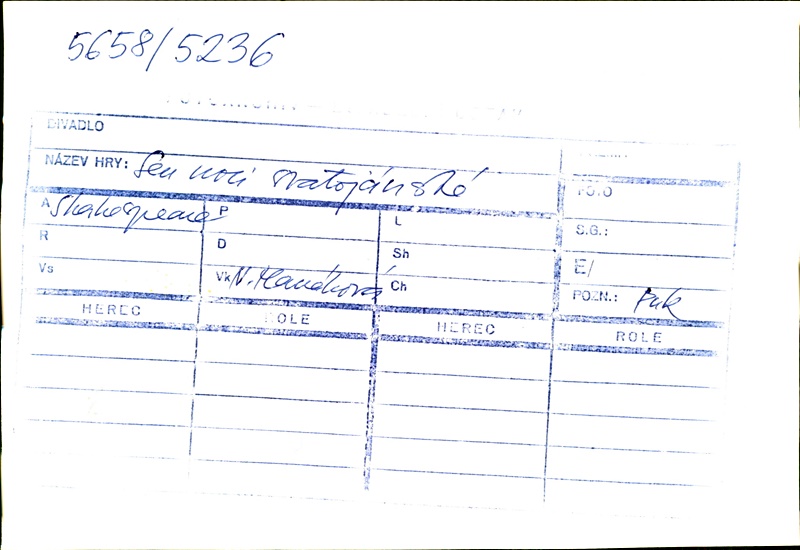 5658/5236
DIVADLO
NÁZEV HRY: Sen noci svatojánské
A Shakespeare P L
S.G.:
R D Sh
E/
Vs Vk N. Hanáková Ch
POZN.: Puk
HEREC ROLE HEREC ROLE